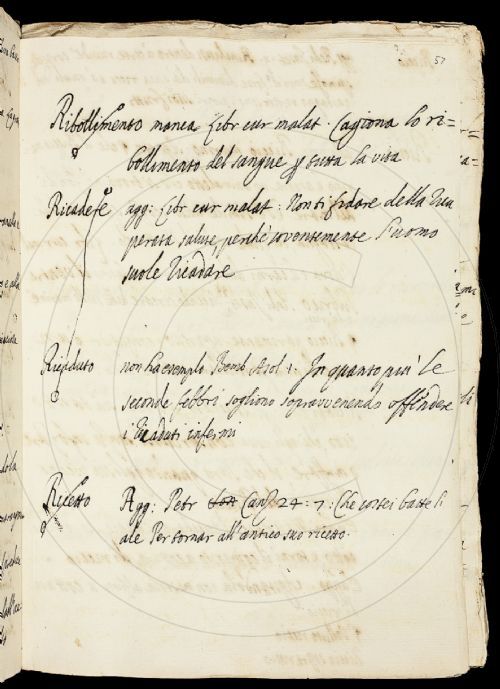 57
Ribollimento manca. Libr cur malat. Cagiona lo ri=
bollimento del sangue p tutta la vita
Ricadere agg: Libr cur malat: Non ti fidare della ricu
perata salute, perchè soventemente l'uomo
suole ricadere
Ricaduto non ha esempio Bemb Asol 1: In quanto più le
seconde febbri sogliono sopravvenendo offendere
i ricaduti infermi
Ricetto Agg: Petr Canz 24: 7: Che costei batte l'
ale Per tornar all'antico suo ricetto.